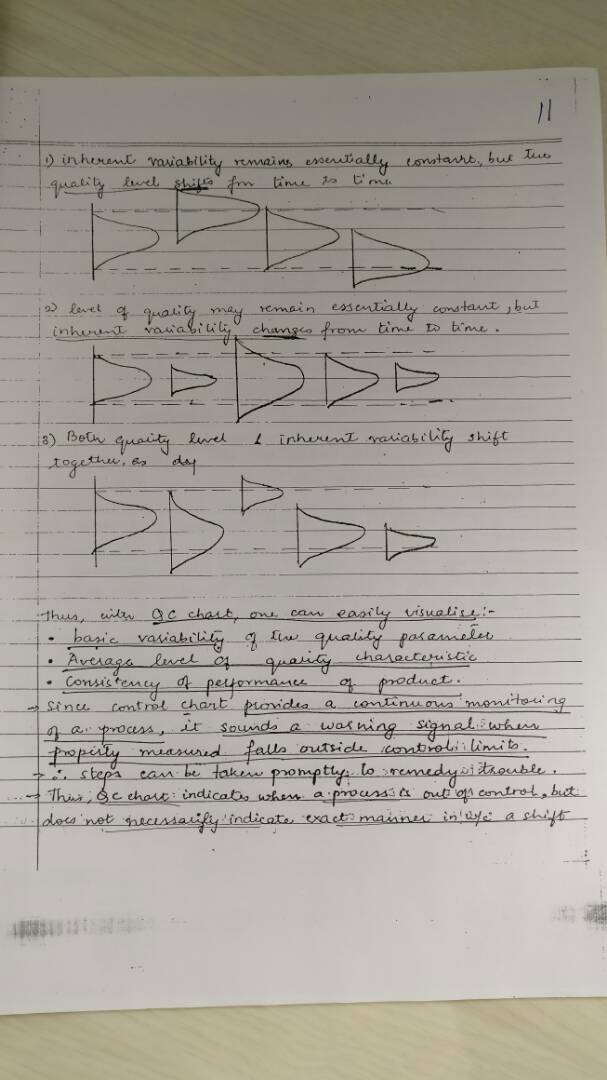 11
1) inherent variability remains essentially constant, but the
quality level shifts frm time to time
2) level of quality may remain essentially constant, but
inherent variability changes from time to time.
3) Both quality level & inherent variability shift
together, as
Thus, with QC chart, one can easily visualise:-
• basic variability of the quality parameter
• Average level of quality characteristic
• Consistency of performance of product.
→ Since control chart provides a continuous monitoring
of a process, it sounds a warning signal when
property measured falls outside control limits.
→ ∴ steps can be taken promptly to remedy trouble.
→ Thus, QC chart indicates when a process is out of control, but
does not necessarily indicate exact manner in w/c a shift